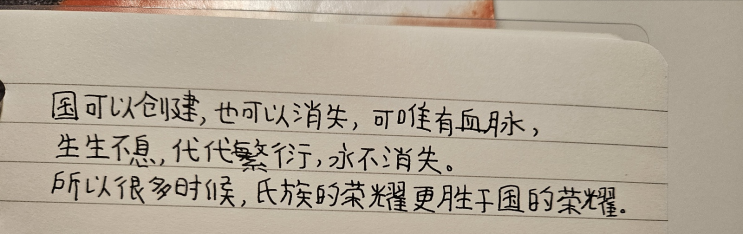 国可以创建,也可以消失,可唯有血脉,
生生不息,代代繁衍,永不消失。
所以很多时候,氏族的荣耀更胜于国的荣耀。